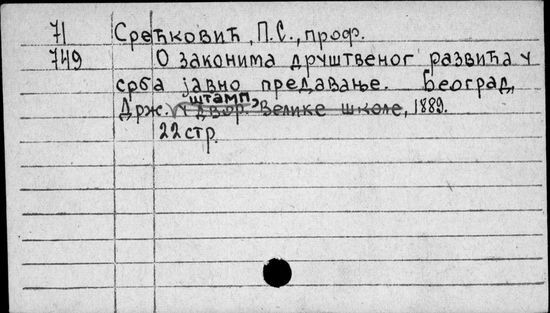 71 Срећковић, П.С., проф.
749 О законима друштвеног развића у
срба јавно предавање. Београд,
штамп.
Држ. у двор. Велике школе, 1889.
22 стр.